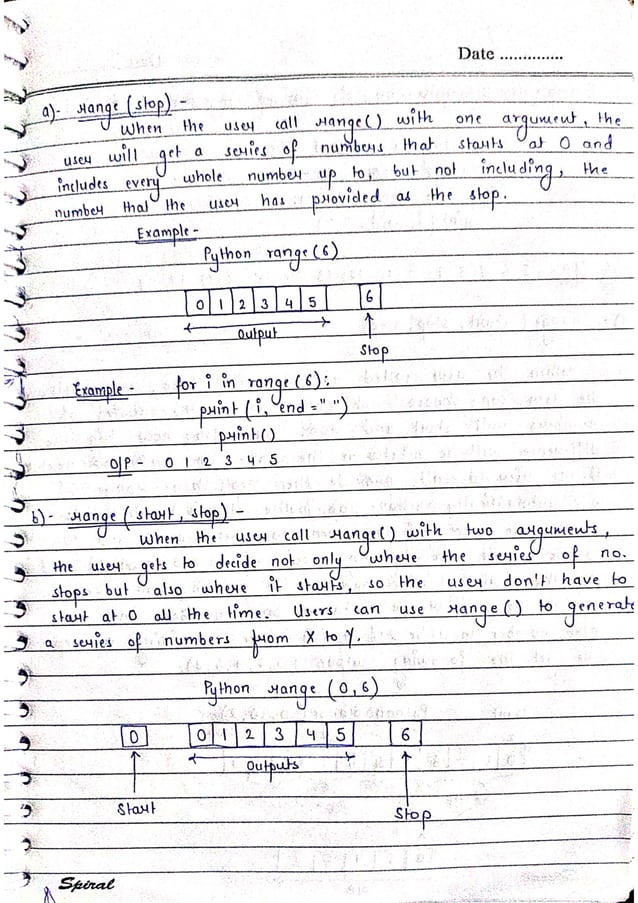 Date ..............
a)- range (stop) -
When the user call range() with one argument, the
user will get a series of numbers that starts at 0 and
includes every whole number up to, but not including, the
number that the user has provided as the stop.
Example -
Python range(6)
0 1 2 3 4 5 6
Output
Stop
Example - for i in range(6):
print(i, end=" ")
print()
O/P - 0 1 2 3 4 5
b)- range (start, stop) -
When the user call range() with two arguments,
the user gets to decide not only where the series of no.
stops but also where it starts, so the user don't have to
start at 0 all the time. Users can use range() to generate
a series of numbers from X to Y.
Python range (0,6)
0 0 1 2 3 4 5 6
Outputs
Start Stop
Spiral